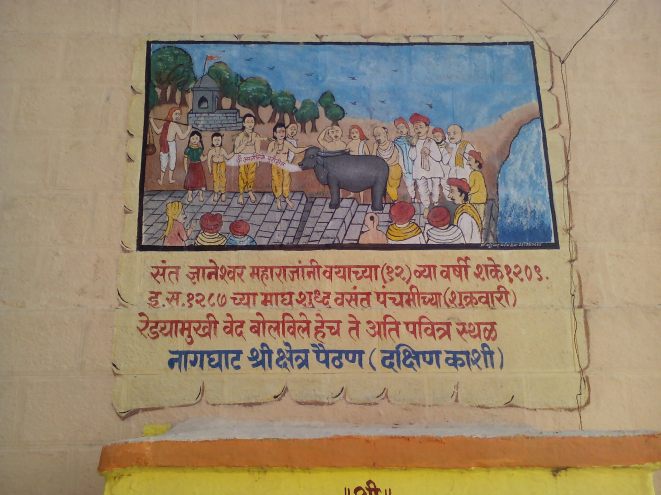 संत ज्ञानेश्वर महाराजांनी वयाच्या (१२) व्या वर्षी शके १२०९.
इ.स.१२८७ च्या माघ शुध्द वसंत पंचमीच्या (शुक्रवारी)
रेडयामुखी वेद बोलविले हेच ते अति पवित्र स्थळ
नागघाट श्री क्षेत्र पैठण ( दक्षिण काशी )
॥श्री